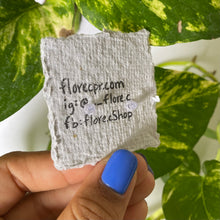 florecpr.com
ig:@ _flore.c
fb:florecShop